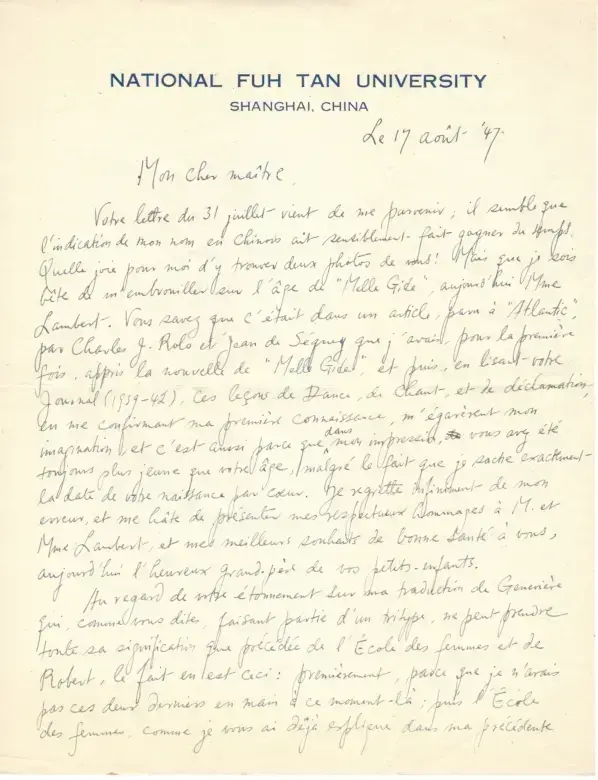 NATIONAL FUH TAN UNIVERSITY
SHANGHAI, CHINA
Le 17 août '47.
Mon cher maître,
Votre lettre du 31 juillet vient de me parvenir ; il semble que
l'indication de mon nom en Chinois ait sensiblement fait gagner du temps.
Quelle joie pour moi d'y trouver deux photos de vous! Mais que je sois
bête de m'embrouiller sur l'âge de "Melle Gide", aujourd'hui Mme
Lambert. Vous savez que c'était dans un article, paru à "Atlantic",
par Charles J. Rolo et Jean de Séguey que j'avais, pour la première
fois, appris la nouvelle de "Melle Gide", et puis, en lisant votre
Journal (1939-42), ces leçons de Dance, de Chant, et de déclamation,
en me confirmant ma première connaissance, m'égarèrent mon
imagination, et c'est aussi parce que dans mon impression, vous avez été
toujours plus jeune que votre âge, malgré le fait que je sache exactement
la date de votre naissance par cœur. Je regrette infiniment de mon
erreur, et me hâte de présenter mes respectueux hommages à M. et
Mme Lambert, et mes meilleurs souhaits de bonne santé à vous,
aujourd'hui l'heureux grand-père de vos petits-enfants.
Au regard de votre étonnement sur ma traduction de Geneviève
qui, comme vous dites, faisant partie d'un tritype, ne peut prendre
toute sa signification que précédée de l'École des femmes et de
Robert, le fait en est ceci : premièrement, parce que je n'avais
pas ces deux derniers en main à ce moment-là ; puis l'École
des femmes, comme je vous ai déjà expliqué dans ma précédente